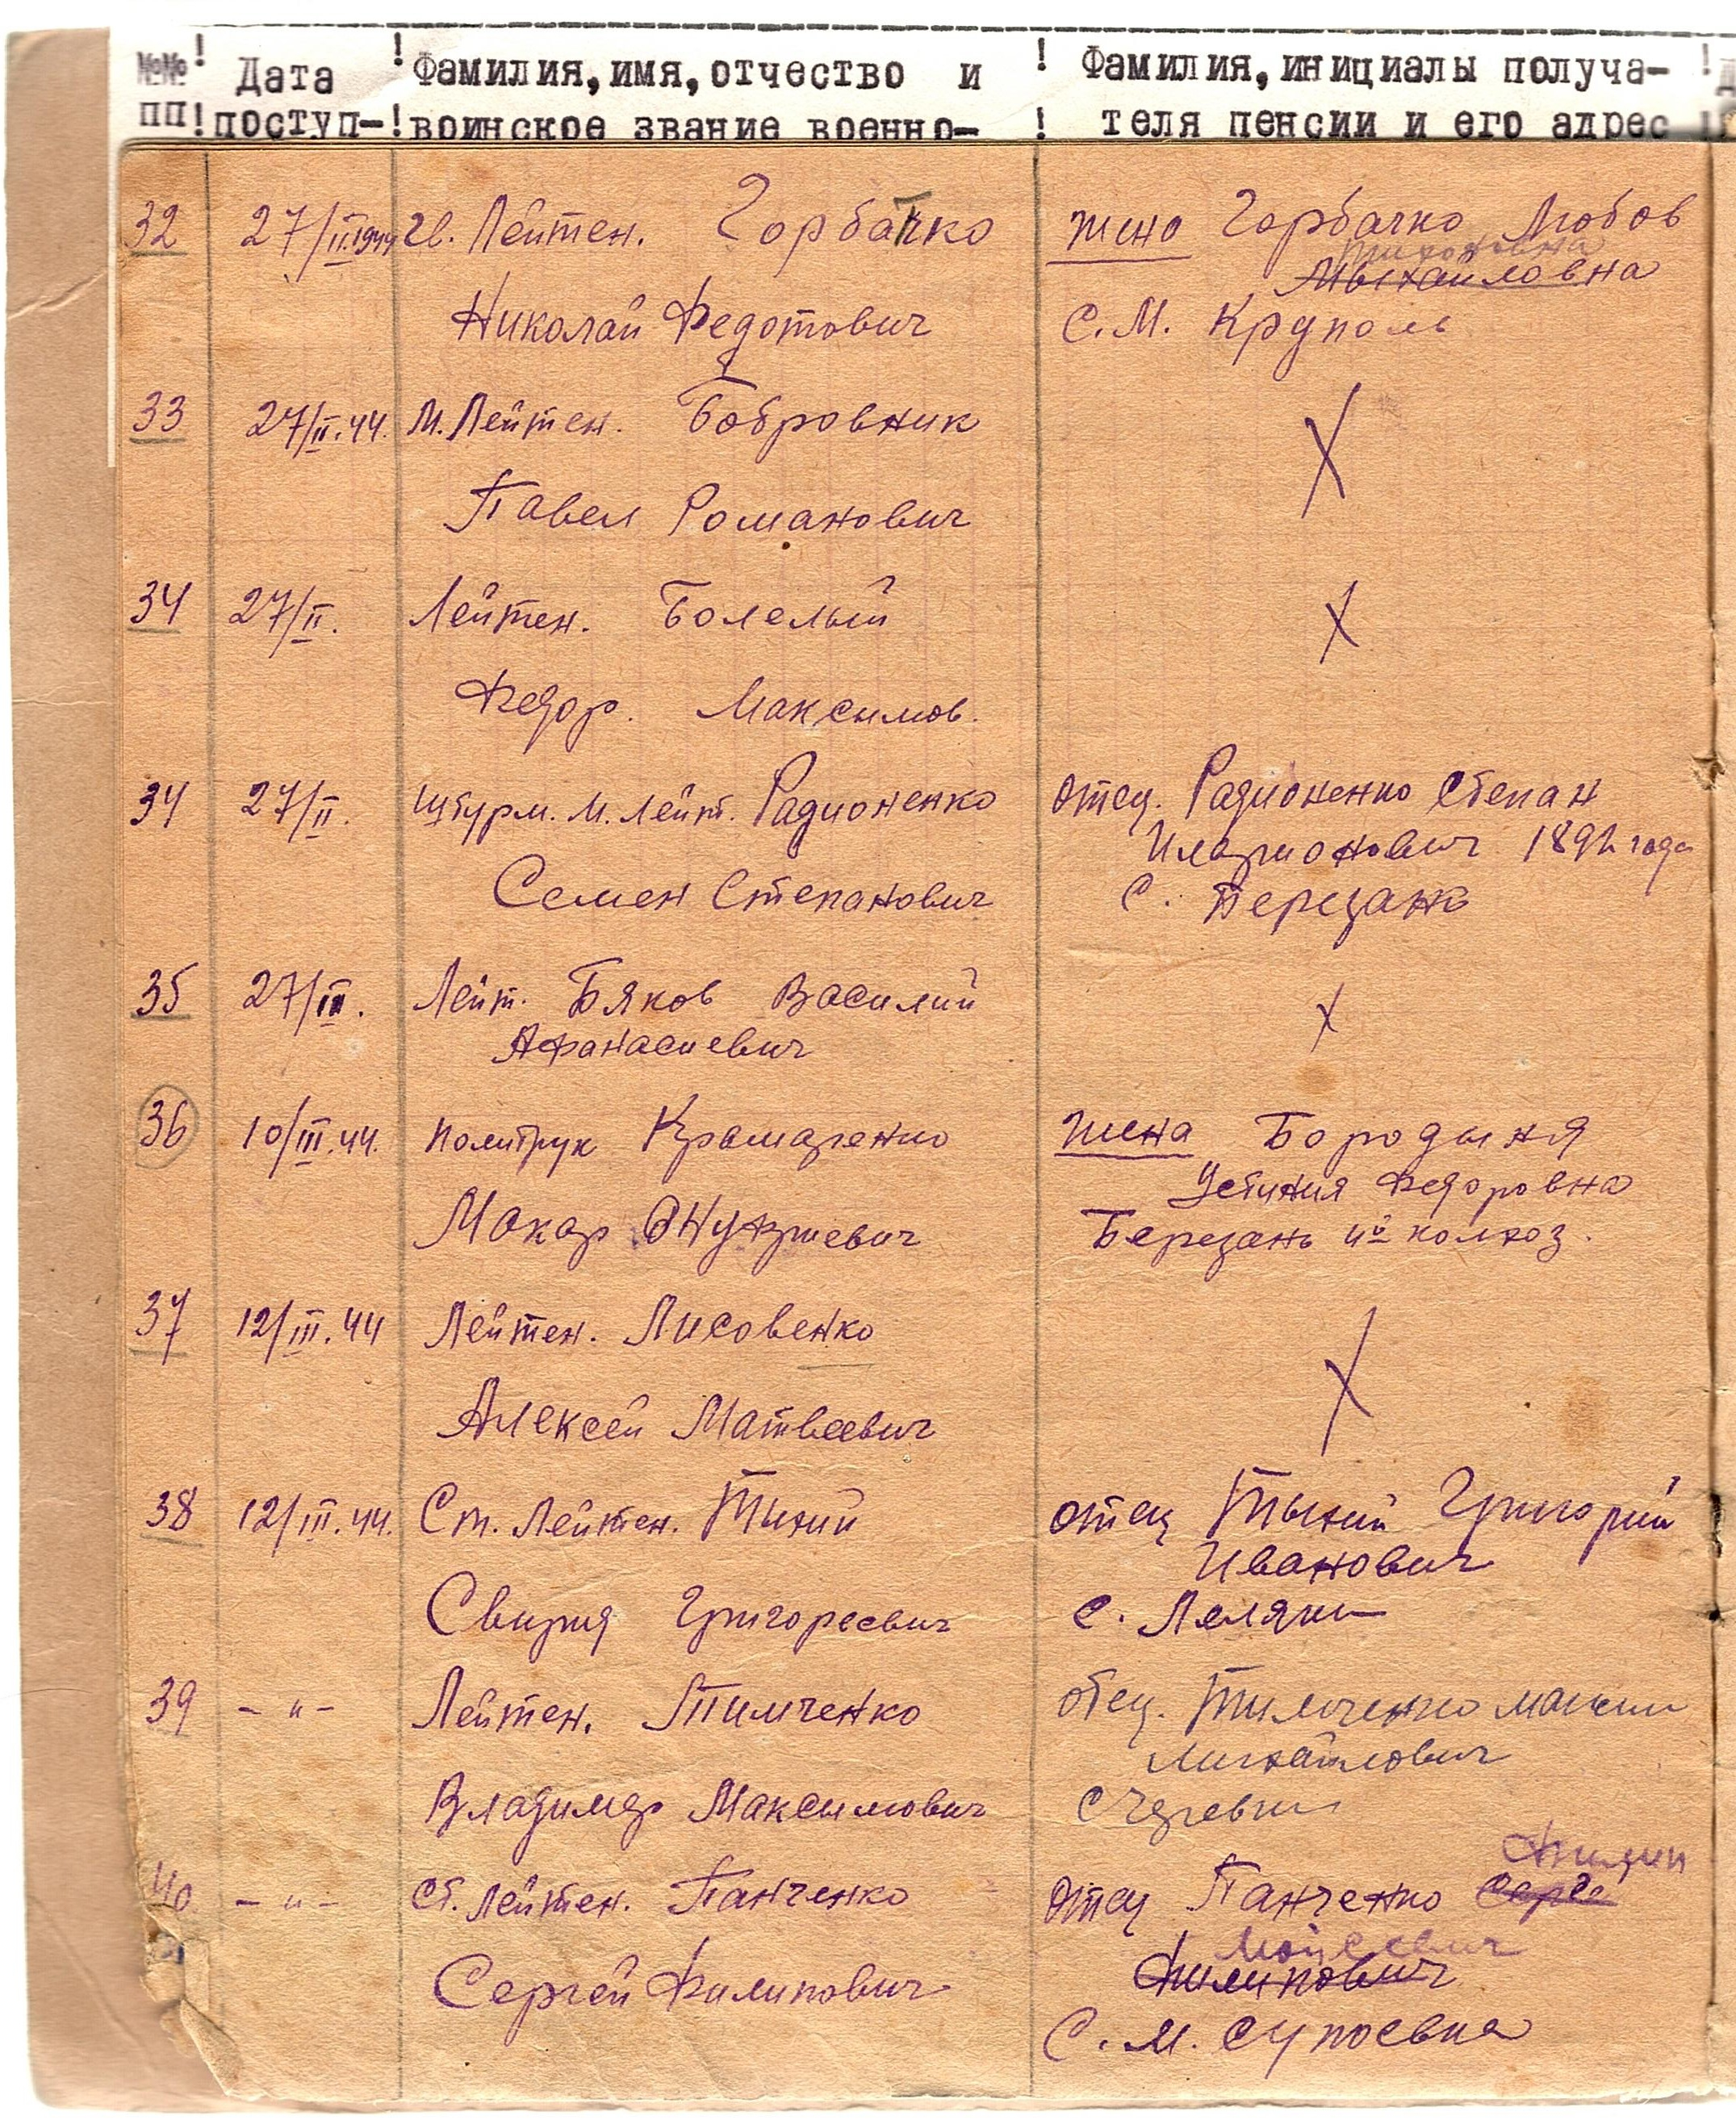 №№ ! Дата ! Фамилия, имя, отчество и ! Фамилия, инициалы получа- !
пп ! поступ- ! воинское звание военно- ! теля пенсии и его адрес !
32 27/II.1944 гв. Лейтен. Горбачко жена Горбачко Любов
Тихоновна
Михайловна
Николай Федотович С. М. Круполь
33 27/II.44. М. Лейтен. Бобровник X
Павел Романович
34 27/II. Лейтен. Болелый X
Федор. Максимов.
34 27/II. Штурм. М. Лейт. Радионенко отец. Радионенко Степан
Иларионович 1892 года
Семен Степанович С. Березань
35 27/III. Лейт. Бяков Василий X
Афанасиевич
36 10/III.44. политрук Крамаренко жена Бородыня
Устиния Федоровна
Макар Березань 4й колхоз.
37 12/III.44 Лейтен. Лисовенко X
Алексей Матвеевич
38 12/III.44. Ст. Лейтен. Тихий отец Тыхий Григорий
Иванович
Свирид Григореевич С. Леляки
39 - " - Лейтен. Тимченко отец. Тимченко Максим
Михайлович
Владимир Максимович С
Филип
40 - " - Ст. Лейтен. Панченко отец Панченко Серге
Мойсеевич
Филипович
Сергей Филипович
С. М. Супоевка